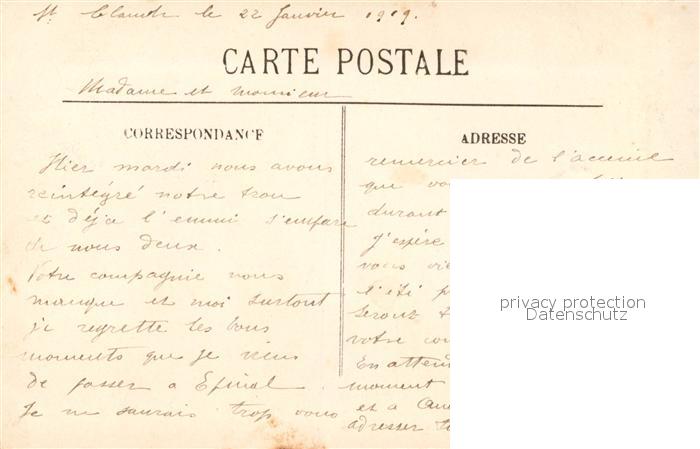 St Claude le 22 Janvier 1919.
CARTE POSTALE
Madame et monsieur
CORRESPONDANCE
Hier mardi nous avons
reintégré notre trou
et déja l'ennui s'empare
de nous deux.
Votre compagnie nous
manque et moi surtout
je regrette les bons
moments que je viens
de passer a Epinal.
Je ne saurais trop vous
ADRESSE
remercier de l'acceuil
que
durant
J'espère
vous
l'été
seront
votre
En
moment
et a
adresser
privacy protection
Datenschutz